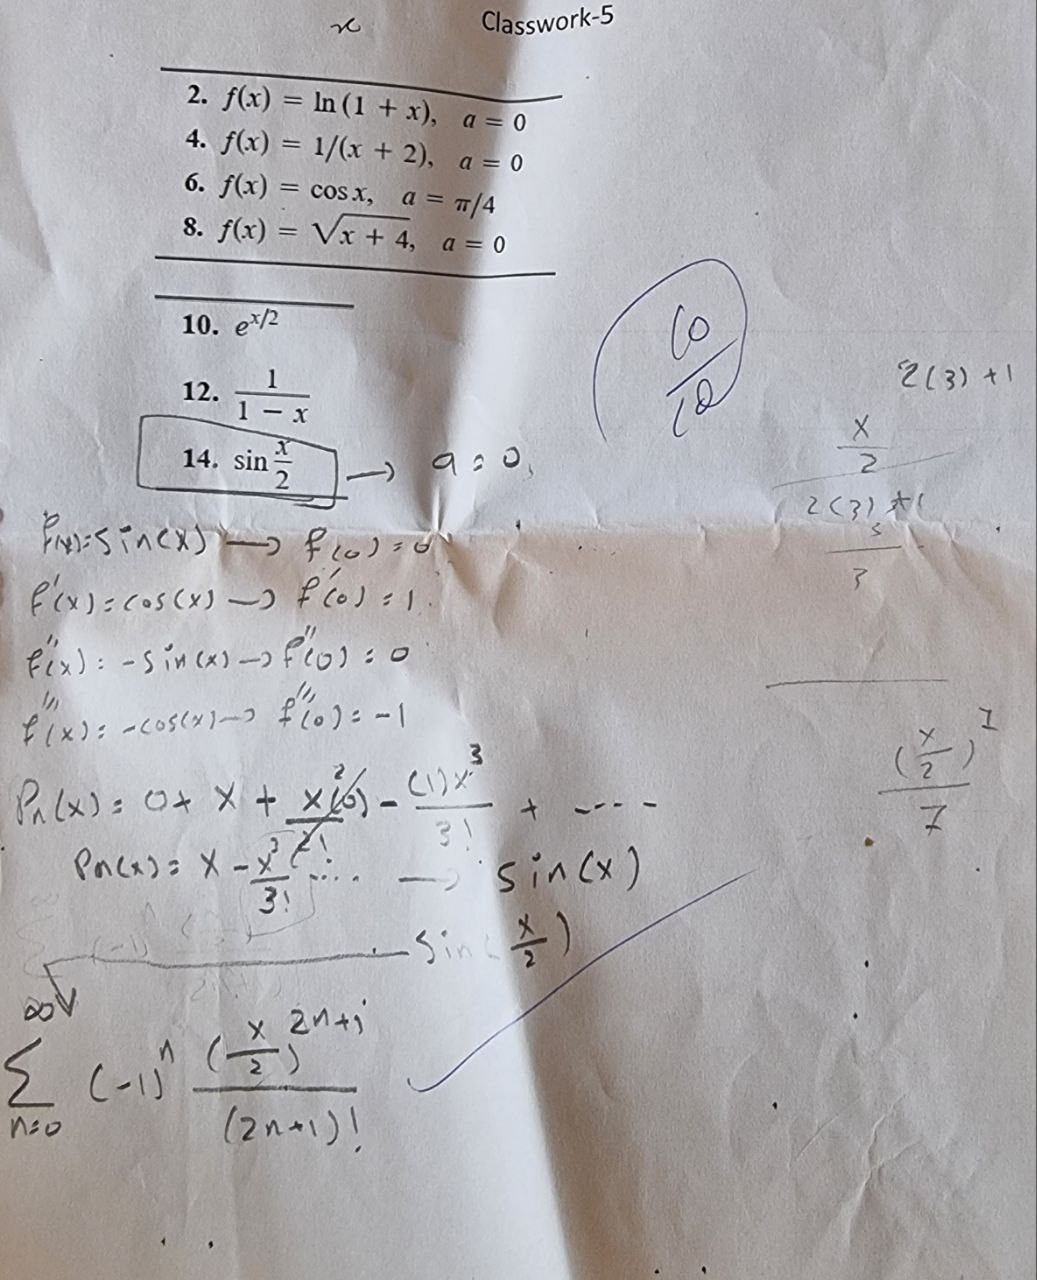 x
Classwork-5
2. f(x) = ln (1 + x), a = 0
4. f(x) = 1/(x + 2), a = 0
6. f(x) = cos x, a = π/4
8. f(x) = √x + 4, a = 0
10. e^x/2
12. 1/(1 - x)
14. sin x/2 → a = 0,
10/10
2(3) + 1
x/2
2(3) + 1
3
(x/2)^7
7
f(x) = sin(x) → f(0) = 0
f'(x) = cos(x) → f'(0) = 1
f''(x) = -sin(x) → f''(0) = 0
f'''(x) = -cos(x) → f'''(0) = -1
Pn(x) = 0 + x + x²(0)/2! - (1)x³/3! + ----
Pn(x) = x - x³/3! .... → sin(x)
sin(x/2)
∞ Σ n=0 (-1)^n (x/2)^2n+1 / (2n+1)!